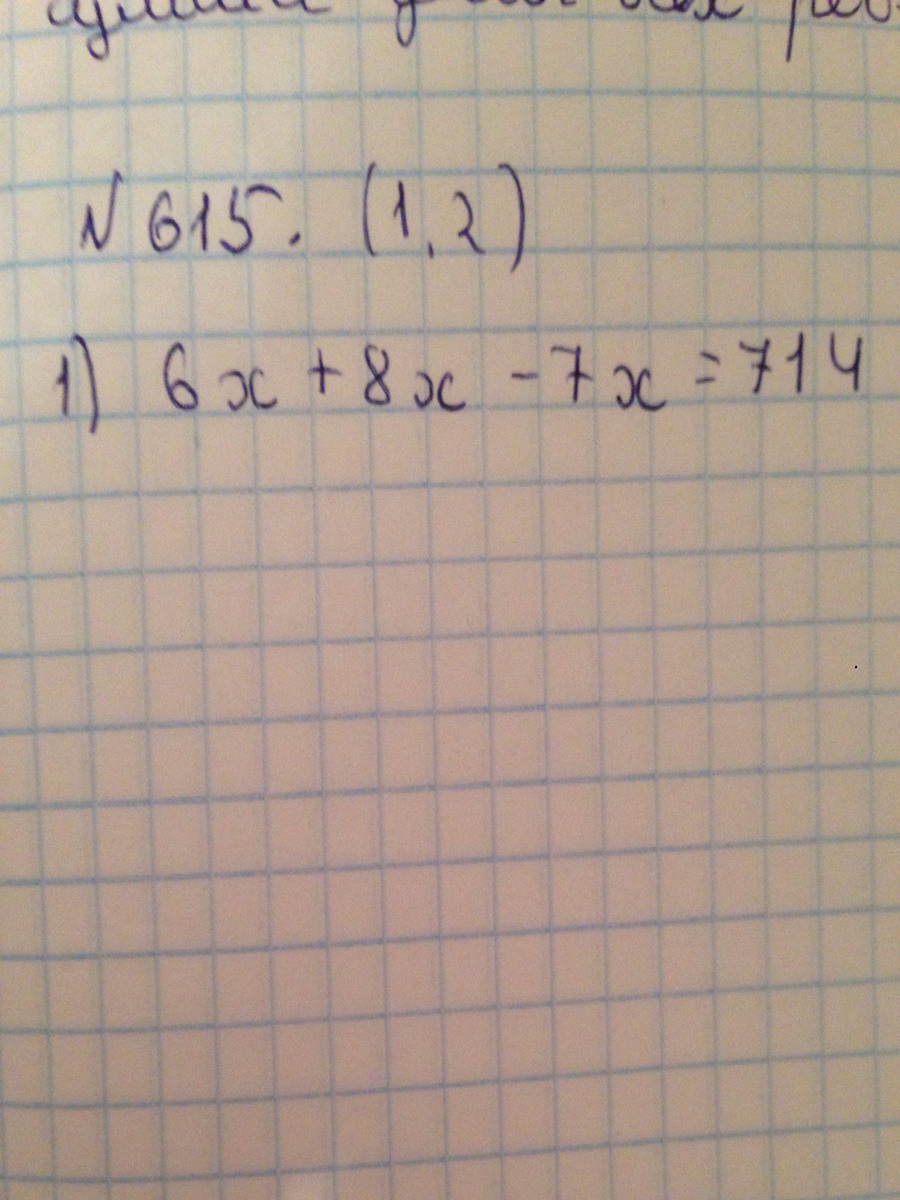 № 615. (1,2)
1) 6x + 8x - 7x = 714